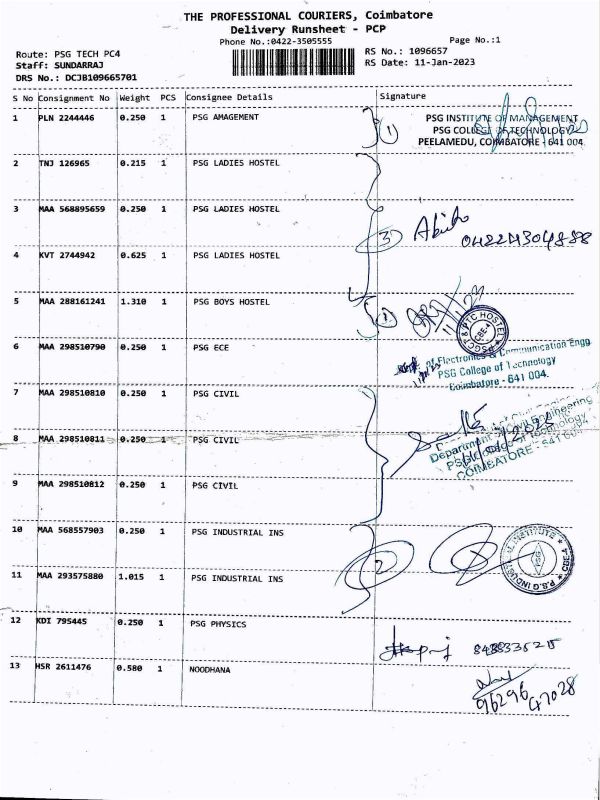 THE PROFESSIONAL COURIERS, Coimbatore
Delivery Runsheet - PCP
Phone No.:0422-3505555 Page No.:1
Route: PSG TECH PC4 RS No.: 1096657
Staff: SUNDARRAJ RS Date: 11-Jan-2023
DRS No.: DCJB109665701
S No Consignment No Weight PCS Consignee Details Signature
1 PLN 2244446 0.250 1 PSG AMAGEMENT 1 PSG INSTITUTE OF MANAGEMENT
PSG COLLEGE OF TECHNOLOGY
PEELAMEDU, COIMBATORE - 641 004
2 TNJ 126965 0.215 1 PSG LADIES HOSTEL
3 MAA 568895659 0.250 1 PSG LADIES HOSTEL 3
4 KVT 2744942 0.625 1 PSG LADIES HOSTEL
5 MAA 288161241 1.310 1 PSG BOYS HOSTEL 1
6 MAA 298510790 0.250 1 PSG ECE of Electronics & Communication Engg
PSG College of Technology
Coimbatore - 641 004.
7 MAA 298510810 0.250 1 PSG CIVIL
8 MAA 298510811 0.250 1 PSG CIVIL Department of Civil Engineering
PSG College of Technology
COIMBATORE - 641 004
9 MAA 298510812 0.250 1 PSG CIVIL
10 MAA 568557903 0.250 1 PSG INDUSTRIAL INS
2
11 MAA 293575880 1.015 1 PSG INDUSTRIAL INS
12 KDI 795445 0.250 1 PSG PHYSICS
13 HSR 2611476 0.580 1 NOODHANA
96296
47028